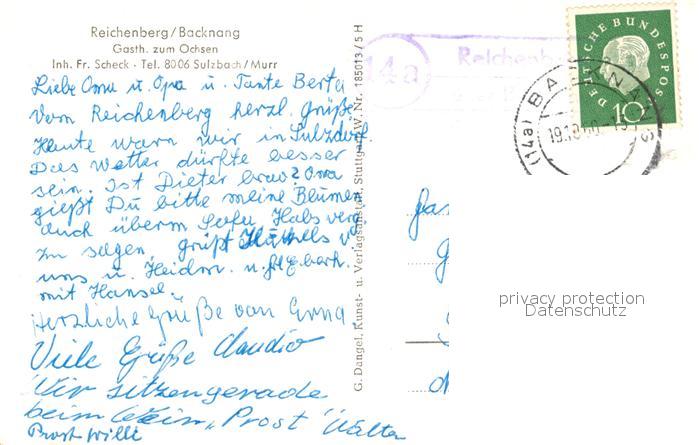 Reichenberg/Backnang
Gasth. zum Ochsen
Inh. Fr. Scheck · Tel. 8006 Sulzbach/Murr
Liebe Oma u. Opa u. Tante Berta
Vom Reichenberg herzl. Grüße
Heute warn wir in Sulzdorf.
Das Wetter dürfte besser
sein. Ist Dieter brav? Oma
gießt Du bitte meine Blumen
auch überm Sofa Habs verg.
zu sagen, grüßt v.
uns u. Heidm. u.
mit Hansel.
Herzliche Grüße von
Viele Grüße Claudio
Wir sitzen gerade
beim Wein, "Prost" Walter
Prost Willi
G. Dangel, Kunst- u. Verlagsanstalt, Stuttgart-W, Nr. 185013/5 H
14a
Reichenb
DEUTSCHE BUNDESPOST
10
(14a) BACKNANG
privacy protection
Datenschutz